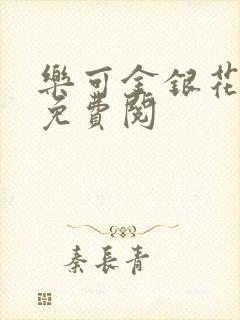 樂可金銀花
免費閱
秦長青